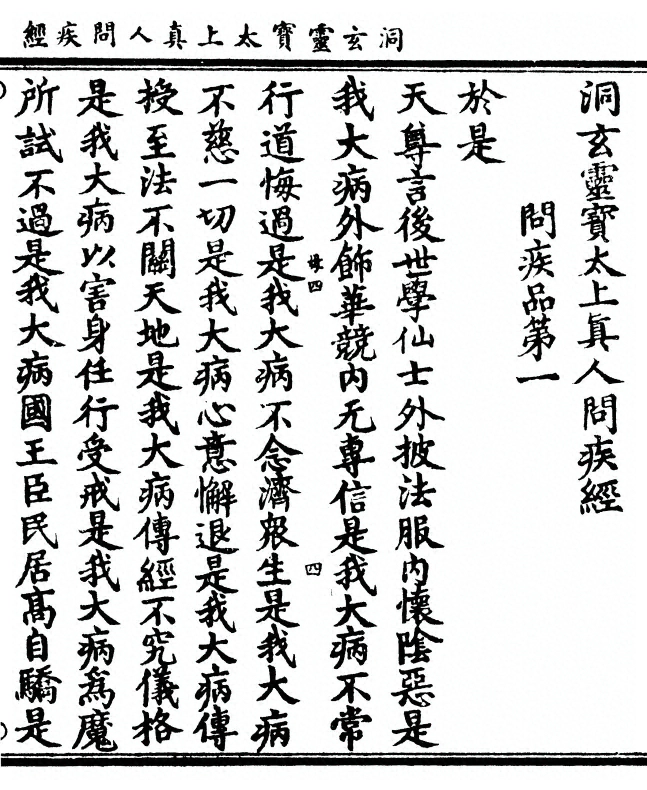 經疾問人真上太寶靈玄洞
洞玄靈寶太上真人問疾經
問疾品第一
於是
天尊言後世學仙士外披法服內懷陰惡是
我大病外飾華競內无專信是我大病不常
行道悔過是我大病不念濟眾生是我大病
四
四
不慈一切是我大病心意懈退是我大病傳
授至法不關天地是我大病傳經不究儀格
是我大病以害身任行受戒是我大病為魔
所試不過是我大病國王臣民居高自驕是